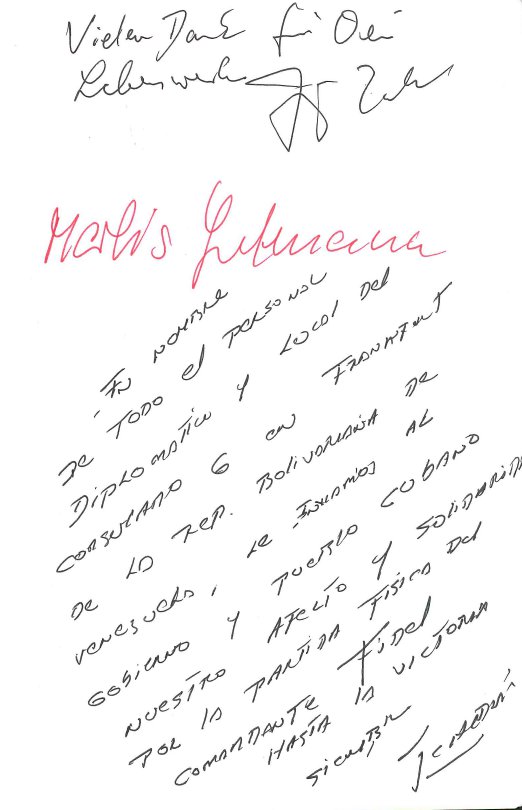 Vielen Dank für Dein
Lebenswerk
Marlis
En nombre
de todo el personal
Diplomatico y Local del
Consulado G en Frankfurt
de la Rep. Bolivariana de
Venezuela, le enviamos al
Gobierno y pueblo cubano
nuestro afecto y solidaridad
por la partida física del
Comandante Fidel
Hasta la victoria
siempre